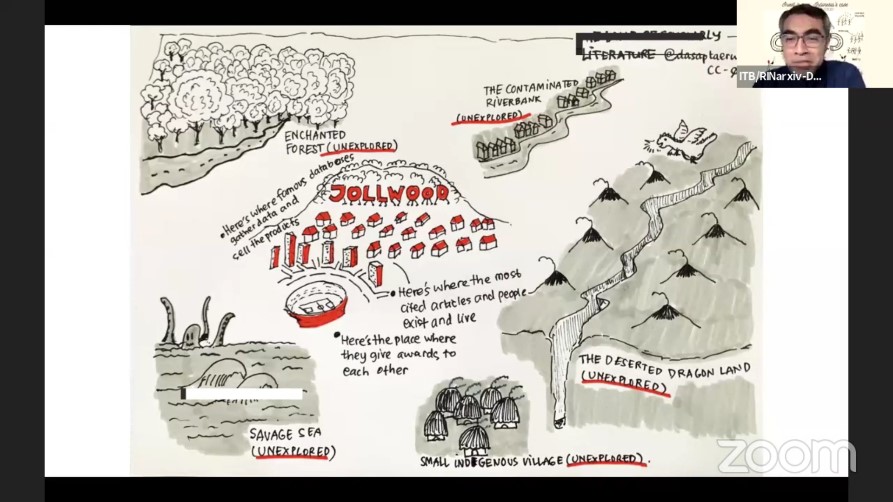 LITERATURE @dasaptaerw
CC-
ITB/RINarxiv-D...
THE CONTAMINATED
RIVERBANK
(UNEXPLORED)
ENCHANTED
FOREST (UNEXPLORED)
JOLLWOOD
• Here's where famous databases
gather data and
sell the products
• Here's where the most
cited articles and people
exist and live
• Here's the place where
they give awards to
each other
THE DESERTED DRAGON LAND
(UNEXPLORED)
SAVAGE SEA
(UNEXPLORED)
SMALL INDEGENOUS VILLAGE (UNEXPLORED).
zoom